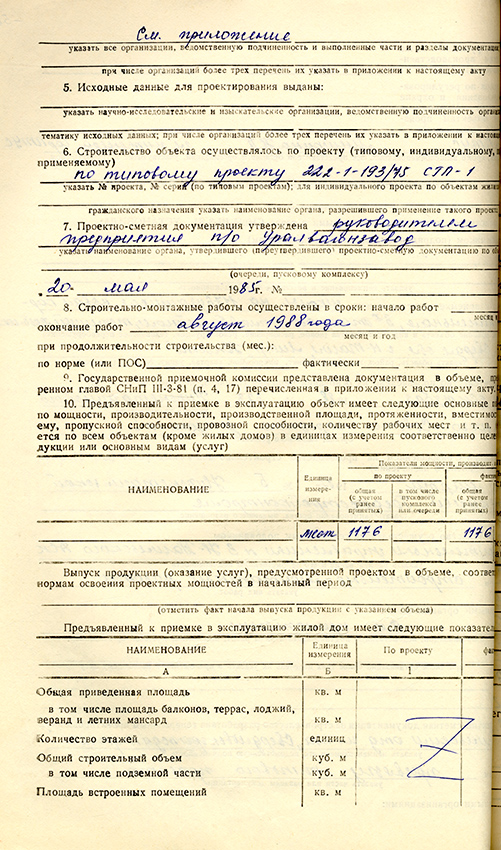 См. приложение
указать все организации, ведомственную подчиненность и выполненные части и разделы документаци
при числе организаций более трех перечень их указать в приложении к настоящему акту
5. Исходные данные для проектирования выданы:
указать научно-исследовательские и изыскательские организации, ведомственную подчиненность орган
тематику исходных данных; при числе организаций более трех перечень их указать в приложении к настоя
6. Строительство объекта осуществлялось по проекту (типовому, индивидуальному,
применяемому)
по типовому проекту 222-1-193/75 СТП-1
указать № проекта, № серии (по типовым проектам); для индивидуального проекта по объектам жили
гражданского назначения указать наименование органа, разрешившего применение такого проек
7. Проектно-сметная документация утверждена руководителем
предприятия п/о Уралвагонзавод
указать наименование органа, утвердившего (переутвердившего) проектно-сметную документацию по об
(очереди, пусковому комплексу)
"20" мая 1985 г. №
8. Строительно-монтажные работы осуществлены в сроки: начало работ
месяц и
окончание работ август 1988 года
месяц и год
при продолжительности строительства (мес.):
по норме (или ПОС) фактически
9. Государственной приемочной комиссии представлена документация в объеме, пр
ренном главой СНиП III-3-81 (п. 4, 17) перечисленная в приложении к настоящему акту.
10. Предъявленный к приемке в эксплуатацию объект имеет следующие основные п
по мощности, производительности, производственной площади, протяженности, вместимос
ему, пропускной способности, провозной способности, количеству рабочих мест и т. п.
ется по всем объектам (кроме жилых домов) в единицах измерения соответственно целе
дукции или основным видам (услуг)
НАИМЕНОВАНИЕ
Единица измере- ния
Показатели мощности, производит
по проекту
факти
общая (с учетом ранее принятых)
в том числе пускового комплекса или очереди
общая (с учетом ранее принятых)
мест 1176 1176
Выпуск продукции (оказание услуг), предусмотренной проектом в объеме, соотве
нормам освоения проектных мощностей в начальный период
(отметить факт начала выпуска продукции с указанием объема)
Предъявленный к приемке в эксплуатацию жилой дом имеет следующие показател
НАИМЕНОВАНИЕ
Единица измерения
По проекту
фак
А Б 1
Общая приведенная площадь кв. м
в том числе площадь балконов, террас, лоджий,
веранд и летних мансард кв. м
Количество этажей единиц
Общий строительный объем куб. м
в том числе подземной части куб. м
Площадь встроенных помещений кв. м